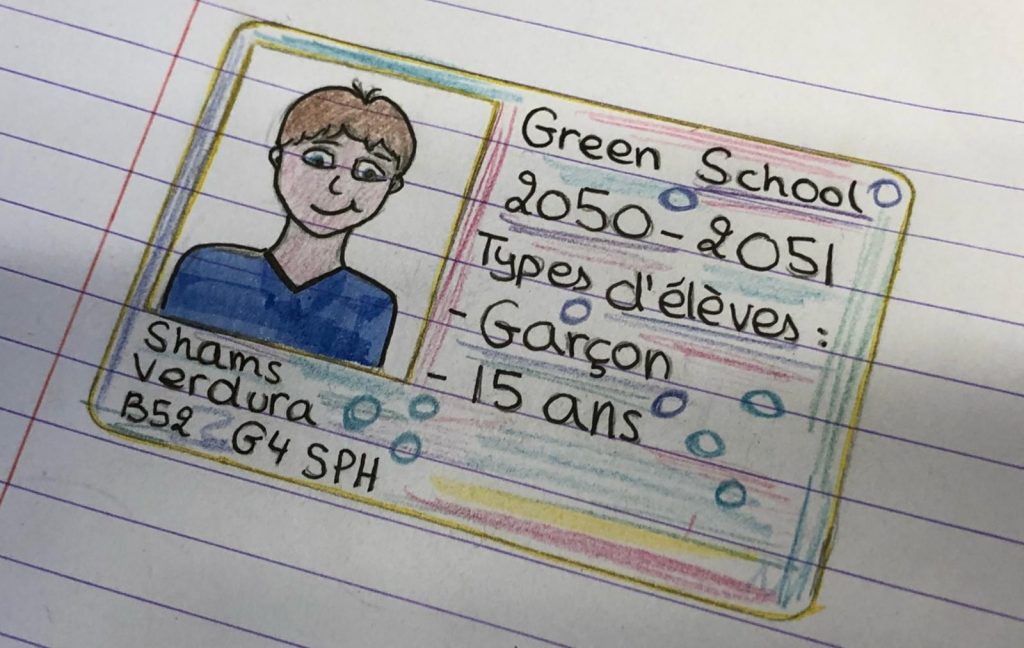 Green School
2050-2051
Types d'élèves :
- Garçon
- 15 ans
Shams
Verdura
B52 G4 SPH